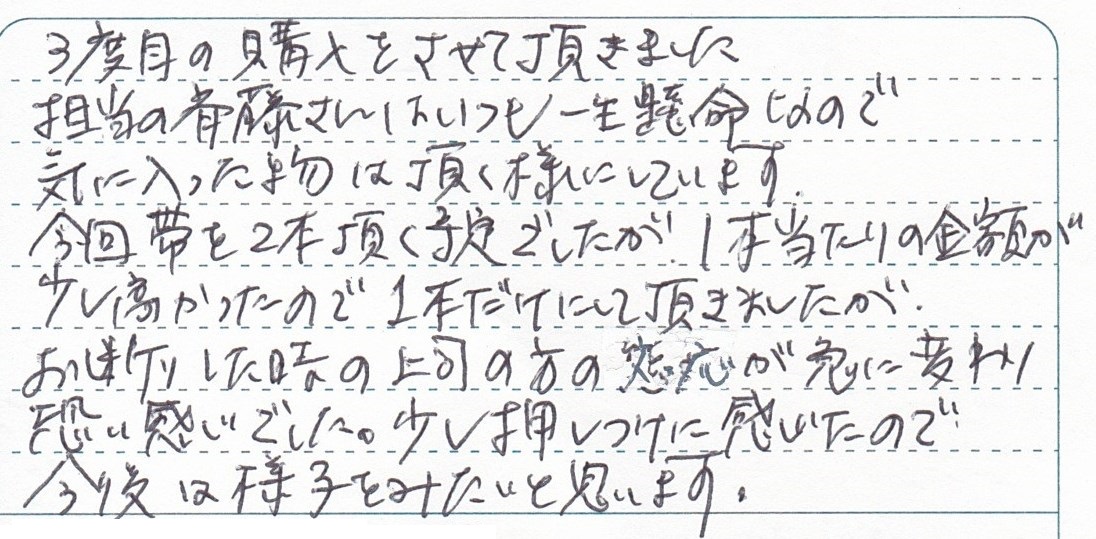 3度目の購入をさせて頂きました
担当の斉藤さんはいつも一生懸命なので
気に入った物は頂く様にしています.
今回帯を2本頂く予定でしたが.1本当たりの金額が
少し高かったので1本だけにして頂きましたが.
お断りした時の上司の方の態応が急に変わり
恐い感じでした。少し押しつけに感じたので
今後は様子をみたいと思います。